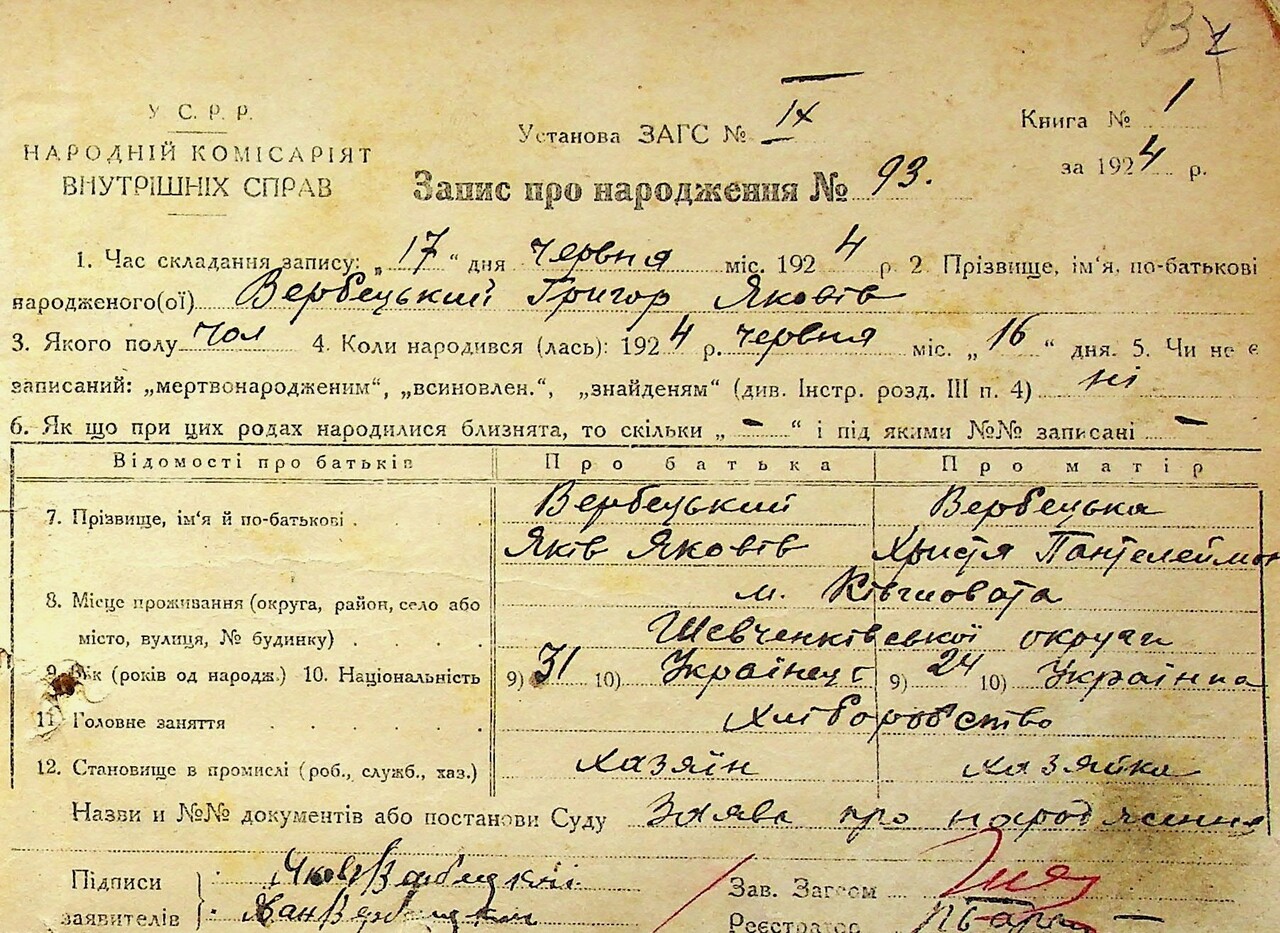 93 7
У С. Р. Р.
НАРОДНІЙ КОМІСАРІЯТ
ВНУТРІШНІХ СПРАВ
Установа ЗАГС № IX
Книга № 1
за 1924 р.
Запис про народження № 93.
1. Час складання запису: „17“ дня червня міс. 1924 р. 2 Прізвище, ім'я, по-батькові
народженого(ої) Вербецький Григор Яковів
3. Якого полу чол 4. Коли народився (лась): 1924 р. червня міс. „16“ дня. 5. Чи не є
записаний: „мертвонародженим“, „всиновлен.“, „знайденям“ (див. Інстр. розд. III п. 4) ні
6. Як що при цих родах народилися близнята, то скільки „ — “ і під якими №№ записані —
Відомості про батьків Про батька Про матір
7. Прізвище, ім'я й по-батькові Вербецький Вербецька
Яків Яковів Христя Пантелеймон
8. Місце проживання (округа, район, село або м. Ківшовата
місто, вулиця, № будинку) Шевченківської округи
9. Вік (років од народж.) 10. Національність 9) 31 10) Українець 9) 24 10) Українка
11. Головне заняття хліборобство
12. Становище в промислі (роб., служб., хаз.) хазяїн хазяйка
Назви и №№ документів або постанови Суду Заява про народження
Підписи Яков Вербецкий
заявителів Иван Вербецкий
Зав. Загсом
Реєстратор